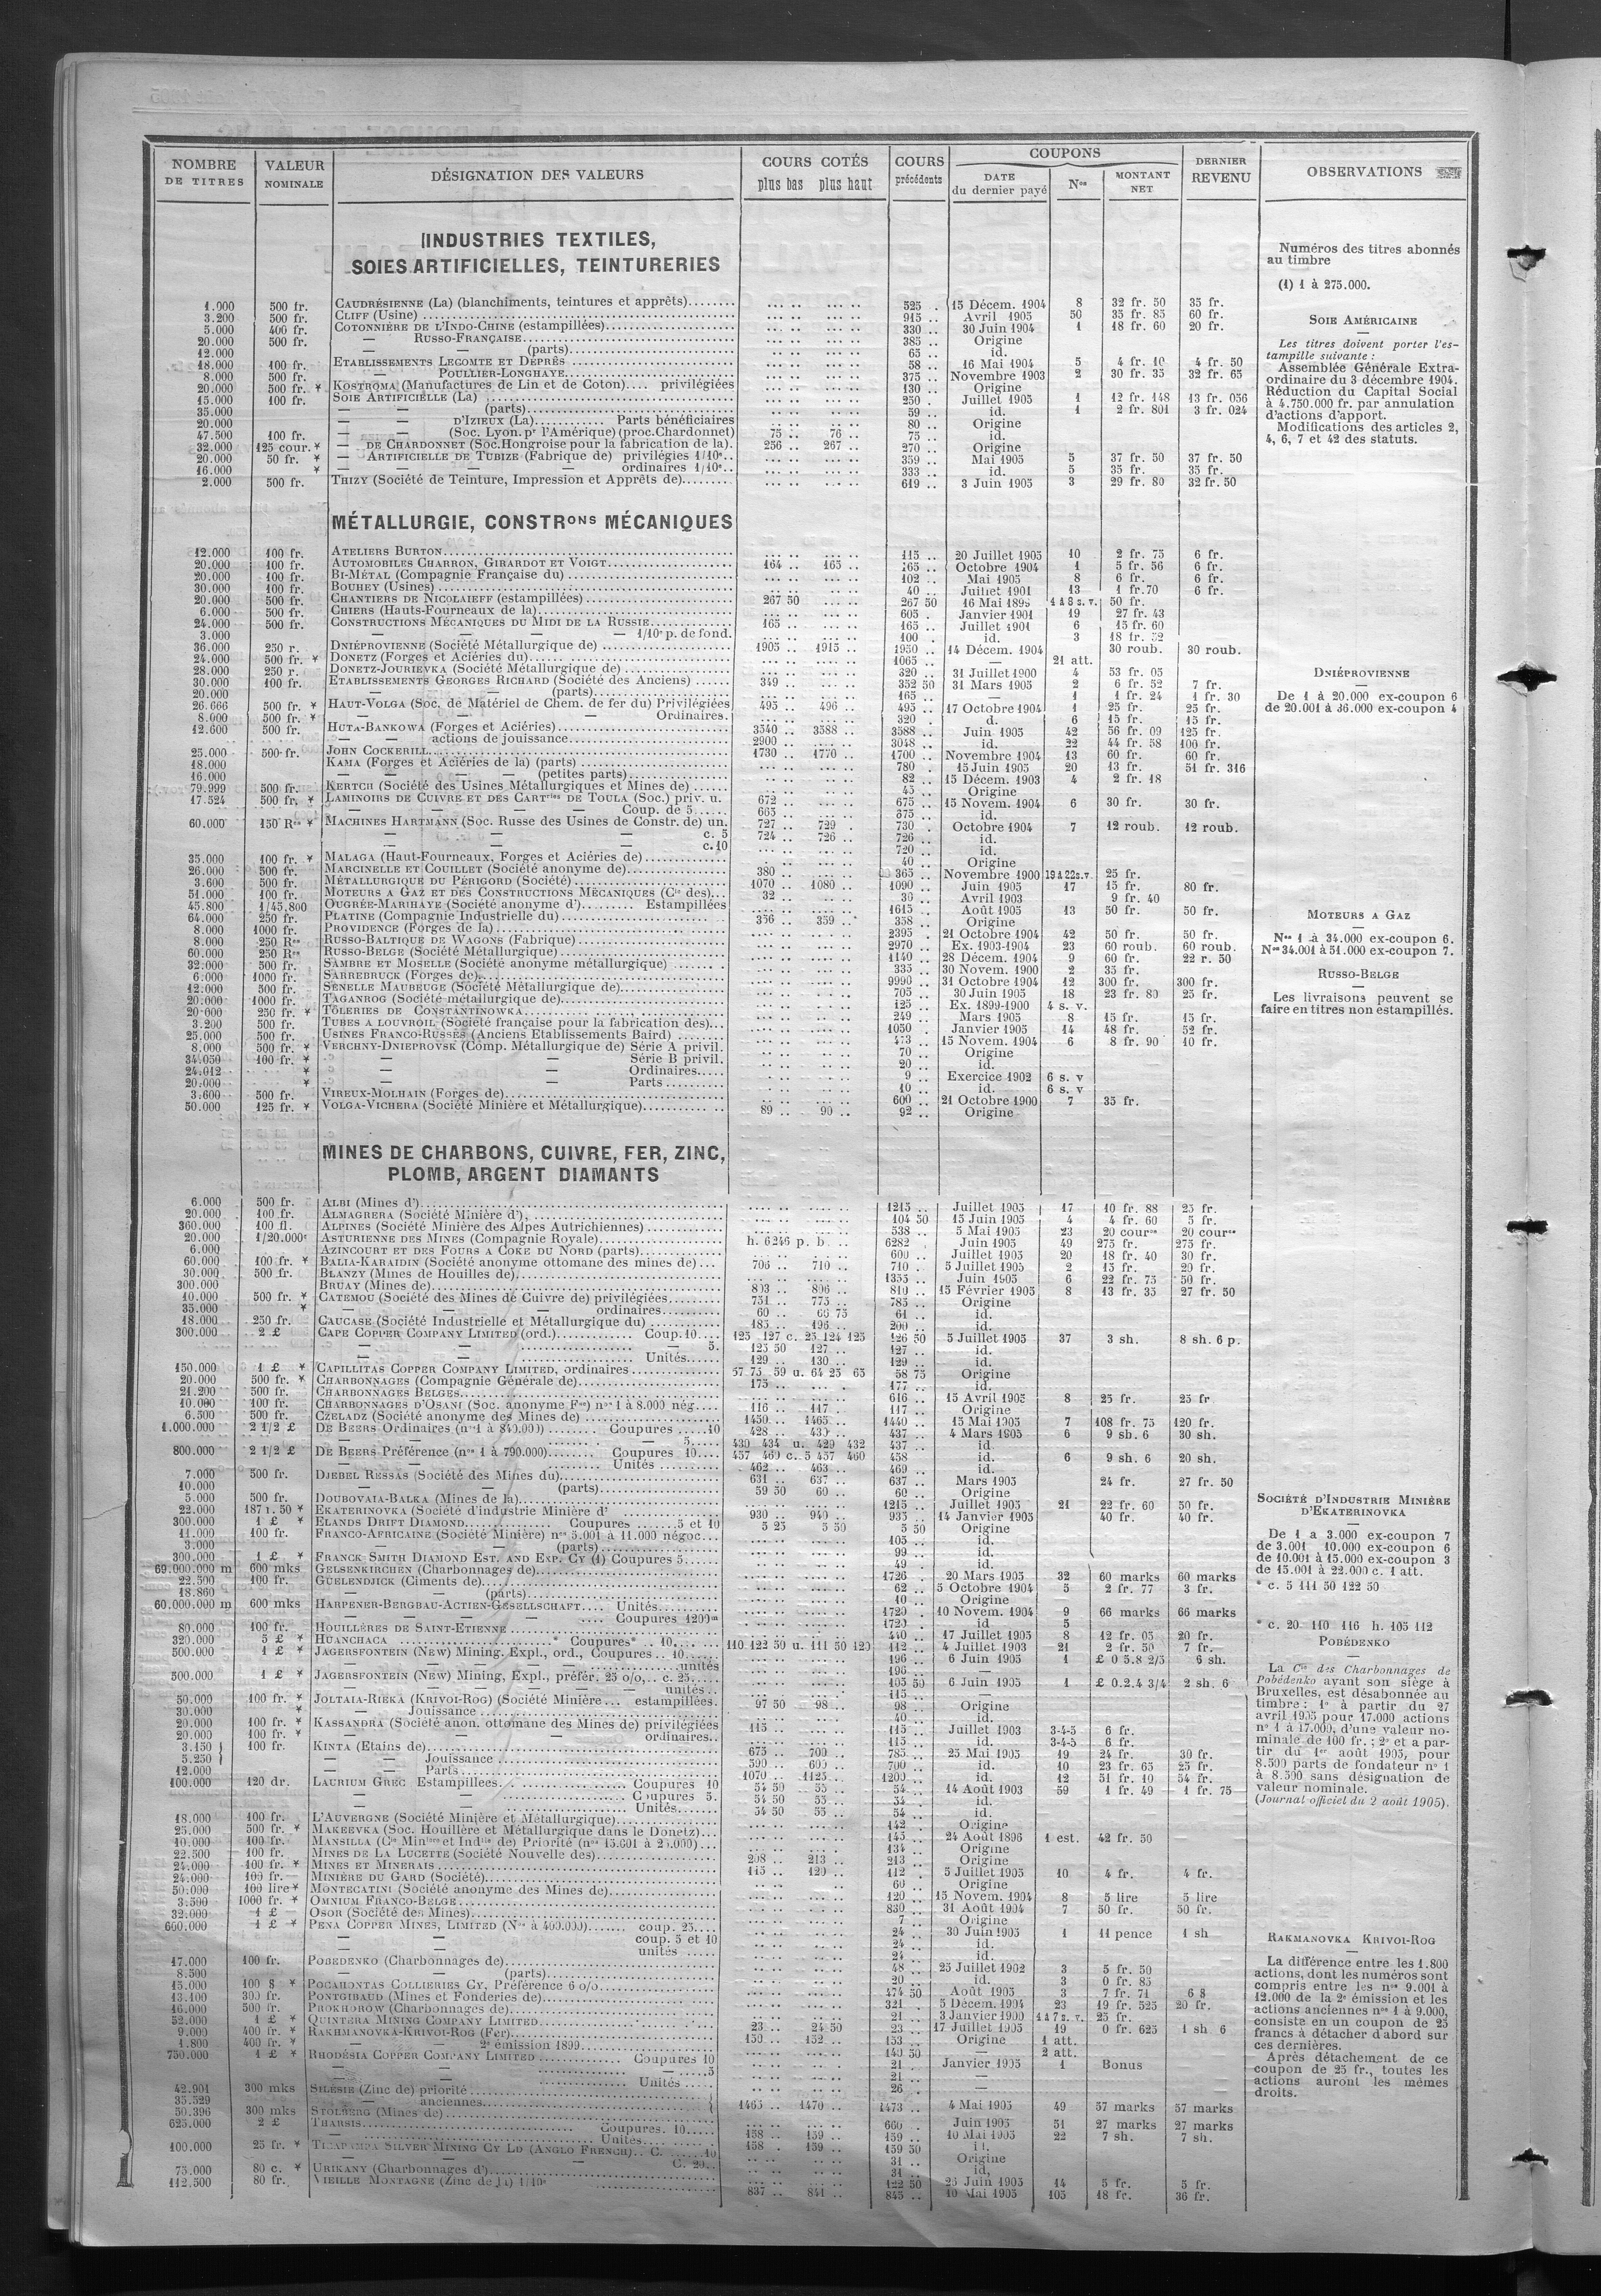 NOMBRE DE TITRES | VALEUR NOMINALE | DÉSIGNATION DES VALEURS | COURS COTÉS plus bas plus haut | COURS précédents | COUPONS DATE du dernier payé | Nos | MONTANT NET | DERNIER REVENU | OBSERVATIONS
INDUSTRIES TEXTILES,
SOIES ARTIFICIELLES, TEINTURERIES
1.000 500 fr. CAUDRÉSIENNE (La) (blanchiments, teintures et apprêts) 525 . 15 Décem. 1904 8 32 fr. 50 35 fr.
3.200 500 fr. CLIFF (Usine) 915 .. Avril 1905 50 35 fr. 85 60 fr.
5.000 400 fr. COTONNIÈRE DE L'INDO-CHINE (estampillées) 330 .. 30 Juin 1904 1 18 fr. 60 20 fr.
20.000 500 fr. — RUSSO-FRANÇAISE 385 .. Origine
12.000 — — (parts) 65 .. id.
18.000 100 fr. ETABLISSEMENTS LECOMTE ET DEPRÊS 58 .. 16 Mai 1904 5 4 fr. 10 4 fr. 50
8.000 500 fr. — POULLIER-LONGHAYE 375 .. Novembre 1903 2 30 fr. 35 32 fr. 65
20.000 500 fr. ¥ KOSTROMA (Manufactures de Lin et de Coton) privilégiées 130 .. Origine
15.000 100 fr. SOIE ARTIFICIELLE (La) 250 . Juillet 1905 1 12 fr. 148 13 fr. 056
35.000 — — (parts) 59 .. id. 1 2 fr. 801 3 fr. 024
20.000 — D'IZIEUX (La) Parts bénéficiaires 80 .. Origine
47.500 100 fr. — (Soc. Lyon. pr l'Amérique) (proc. Chardonnet) 75 .. 76 .. 75 .. id.
32.000 125 cour. ¥ — DE CHARDONNET (Soc. Hongroise pour la fabrication de la). 256 .. 267 .. 270 .. Origine
20.000 50 fr. ¥ — ARTIFICIELLE DE TUBIZE (Fabrique de) privilégies 1/10e.. 359 .. Mai 1905 5 37 fr. 50 37 fr. 50
16.000 ¥ — — — — ordinaires 1/10e.. 333 .. id. 5 35 fr. 35 fr.
2.000 500 fr. THIZY (Société de Teinture, Impression et Apprêts de) 619 .. 3 Juin 1905 3 29 fr. 80 32 fr. 50
MÉTALLURGIE, CONSTRons MÉCANIQUES
12.000 100 fr. ATELIERS BURTON 115 .. 20 Juillet 1905 10 2 fr. 75 6 fr.
20.000 100 fr. AUTOMOBILES CHARRON, GIRARDOT ET VOIGT 164 .. 165 .. 165 .. Octobre 1904 1 5 fr. 56 6 fr.
20.000 100 fr. BI-MÉTAL (Compagnie Française du) 102 .. Mai 1905 8 6 fr. 6 fr.
30.000 100 fr. BOUHEY (Usines) 40 .. Juillet 1901 13 4 fr. 70 6 fr.
20.000 500 fr. CHANTIERS DE NICOLAIEFF (estampillées) 267 50 267 50 16 Mai 1899 1 à 8 s. v. 50 fr.
6.000 500 fr. CHIERS (Hauts-Fourneaux de la) 605 . Janvier 1901 19 27 fr. 43
24.000 500 fr. CONSTRUCTIONS MÉCANIQUES DU MIDI DE LA RUSSIE 165 .. 165 .. Juillet 1901 6 15 fr. 60
3.000 — — — — 1/10e p. de fond. 100 . id. 3 18 fr. 52
36.000 250 r. DNIÉPROVIENNE (Société Métallurgique de) 1905 .. 1915 .. 1950 .. 14 Décem. 1904 30 roub. 30 roub.
24.000 500 fr. ¥ DONETZ (Forges et Aciéries du) 1065 .. — 21 att.
28.000 250 r. DONETZ-JOURIEVKA (Société Métallurgique de) 320 .. 31 Juillet 1900 4 53 fr. 05
30.000 100 fr. ETABLISSEMENTS GEORGES RICHARD (Société des Anciens) 349 .. 352 50 31 Mars 1905 2 6 fr. 52 7 fr.
20.000 — — (parts) 165 .. — 1 1 fr. 24 1 fr. 30
26.666 500 fr. ¥ HAUT-VOLGA (Soc. de Matériel de Chem. de fer du) Privilégiées 495 .. 496 .. 495 .. 17 Octobre 1904 1 25 fr. 25 fr.
8.000 500 fr. ¥ — — — Ordinaires. 320 . d. 6 15 fr. 15 fr.
12.600 500 fr. HUTA-BANKOWA (Forges et Aciéries) 3540 .. 3588 .. 3588 .. Juin 1905 42 56 fr. 09 125 fr.
— — actions de jouissance 2900 .. 3048 .. id. 22 44 fr. 58 100 fr.
25.000 500 fr. JOHN COCKERILL 1730 .. 1770 .. 1700 .. Novembre 1904 13 60 fr. 60 fr.
18.000 KAMA (Forges et Aciéries de la) (parts) 780 . 15 Juin 1905 20 13 fr. 51 fr. 316
16.000 — — — — (petites parts) 82 .. 15 Décem. 1903 4 2 fr. 18
79.999 500 fr. KERTCH (Société des Usines Métallurgiques et Mines de) 45 .. Origine
17.524 500 fr. ¥ LAMINOIRS DE CUIVRE ET DES CARTries DE TOULA (Soc.) priv. u. 672 .. 675 .. 15 Novem. 1904 6 30 fr. 30 fr.
— — — Coup. de 5 665 .. 675 .. id.
60.000 150 Res ¥ MACHINES HARTMANN (Soc. Russe des Usines de Constr. de) un. 727 .. 729 . 730 . Octobre 1904 7 12 roub. 12 roub.
— — — c. 5 724 .. 726 .. 726 .. id.
— — — c. 10 720 .. id.
35.000 100 fr. ¥ MALAGA (Haut-Fourneaux, Forges et Aciéries de) 40 .. Origine
26.000 500 fr. MARCINELLE ET COUILLET (Société anonyme de) 380 .. 365 .. Novembre 1900 19 à 22 s. v. 25 fr.
3.600 500 fr. MÉTALLURGIQUE DU PÉRIGORD (Société) 1070 .. 1080 .. 1090 .. Juin 1905 17 15 fr. 80 fr.
51.000 100 fr. MOTEURS A GAZ ET DES CONSTRUCTIONS MÉCANIQUES (Cie des) 32 .. 30 .. Avril 1903 9 fr. 40
45.800 1/45.800 OUGRÉE-MARIHAYE (Société anonyme d') Estampillées 1615 .. Août 1905 13 50 fr. 50 fr.
64.000 250 fr. PLATINE (Compagnie Industrielle du) 356 .. 359 .. 358 .. Origine
8.000 1000 fr. PROVIDENCE (Forges de la) 2395 .. 21 Octobre 1904 42 50 fr. 50 fr.
8.000 250 Res RUSSO-BALTIQUE DE WAGONS (Fabrique) 2970 .. Ex. 1903-1904 23 60 roub. 60 roub.
60.000 250 Res RUSSO-BELGE (Société Métallurgique) 1140 .. 28 Décem. 1904 9 60 fr. 22 r. 50
32.000 500 fr. SAMBRE ET MOSELLE (Société anonyme métallurgique) 335 .. 30 Novem. 1900 2 35 fr.
6.000 1000 fr. SARREBRUCK (Forges de) 9990 .. 31 Octobre 1904 12 300 fr. 300 fr.
12.000 500 fr. SENELLE MAUBEUGE (Société Métallurgique de) 705 .. 30 Juin 1905 18 23 fr. 80 25 fr.
20.000 1000 fr. TAGANROG (Société métallurgique de) 125 .. Ex. 1899-1900 4 s. v.
20.000 250 fr. ¥ TÔLERIES DE CONSTANTINOWKA 249 .. Mars 1905 8 15 fr. 15 fr.
3.200 500 fr. TUBES A LOUVROIL (Société française pour la fabrication des) 1050 . Janvier 1905 14 48 fr. 52 fr.
25.000 500 fr. USINES FRANCO-RUSSES (Anciens Etablissements Baird) 473 .. 15 Novem. 1904 6 8 fr. 90 10 fr.
8.000 500 fr. ¥ VERCHNY-DNIEPROVSK (Comp. Métallurgique de) Série A privil. 70 .. Origine
34.050 100 fr. ¥ — — Série B privil. 20 .. id.
24.012 ¥ — — Ordinaires 9 .. Exercice 1902 6 s. v
20.000 ¥ — — Parts 10 .. id. 6 s. v
3.600 500 fr. VIREUX-MOLHAIN (Forges de) 600 .. 21 Octobre 1900 7 35 fr.
50.000 125 fr. ¥ VOLGA-VICHERA (Société Minière et Métallurgique) 89 .. 90 .. 92 .. Origine
MINES DE CHARBONS, CUIVRE, FER, ZINC,
PLOMB, ARGENT DIAMANTS
6.000 500 fr. ALBI (Mines d') 1215 .. Juillet 1905 17 10 fr. 88 25 fr.
20.000 100 fr. ALMAGRERA (Société Minière d') 104 50 15 Juin 1905 4 4 fr. 60 5 fr.
360.000 100 fl. ALPINES (Société Minière des Alpes Autrichiennes) 538 .. 5 Mai 1905 23 20 cour 20 cour
20.000 1/20.000e ASTURIENNE DES MINES (Compagnie Royale) h. 6246 p. b 6282 . Juin 1905 49 275 fr. 275 fr.
6.000 AZINCOURT ET DES FOURS A COKE DU NORD (parts) 600 .. Juillet 1905 20 18 fr. 40 30 fr.
60.000 100 fr. ¥ BALIA-KARAIDIN (Société anonyme ottomane des mines de) 706 .. 710 .. 710 . 5 Juillet 1905 2 15 fr. 20 fr.
30.000 500 fr. BLANZY (Mines de Houilles de) 1355 .. Juin 1905 6 22 fr. 75 50 fr.
300.000 BRUAY (Mines de) 803 .. 806 .. 810 .. 15 Février 1905 8 13 fr. 35 27 fr. 50
10.000 500 fr. ¥ CATEMOU (Société des Mines de Cuivre de) privilégiées 751 .. 775 .. 785 .. Origine
35.000 ¥ — — — ordinaires 60 .. 60 75 61 . id.
18.000 250 fr. CAUCASE (Société Industrielle et Métallurgique du) 185 .. 196 .. 200 .. id.
300.000 2 £ CAPE COPPER COMPANY LIMITED (ord.) Coup. 10 125 127 c. 25 124 125 126 50 5 Juillet 1905 37 3 sh. 8 sh. 6 p.
— — — 5. 125 50 127 .. 127 .. id.
— — Unités 129 .. 130 .. 129 .. id.
150.000 1 £ ¥ CAPILLITAS COPPER COMPANY LIMITED, ordinaires 57 75 59 u. 64 25 65 58 75 Origine
20.000 500 fr. ¥ CHARBONNAGES (Compagnie Générale de) 175 .. 177 .. id.
21.200 500 fr. CHARBONNAGES BELGES 616 .. 15 Avril 1905 8 25 fr. 25 fr
10.000 100 fr. CHARBONNAGES D'OSANI (Soc. anonyme Fse) nos 1 à 8.000 nég 116 .. 117 .. 117 .. Origine
6.500 500 fr. CZELADZ (Société anonyme des Mines de) 1450 .. 1465 .. 1440 .. 15 Mai 1905 7 108 fr. 75 120 fr.
1.000.000 2 1/2 £ DE BEERS Ordinaires (nos 1 à 840.000) Coupures 10 428 .. 430 .. 437 .. 4 Mars 1905 6 9 sh. 6 30 sh.
— — 5 430 434 u. 429 432 437 .. id.
800.000 2 1/2 £ DE BEERS Préférence (nos 1 à 790.000) Coupures 10 457 460 c. 5 457 460 458 id. 6 9 sh. 6 20 sh.
— Unités 462 .. 463 .. 469 .. id.
7.000 500 fr. DJEBEL RESSAS (Société des Mines du) 631 .. 637 .. 637 . Mars 1905 24 fr. 27 fr. 50
10.000 — — (parts) 59 50 60 .. 60 .. Origine
5.000 500 fr. DOUBOVAIA-BALKA (Mines de la) 1215 .. Juillet 1905 21 22 fr. 60 50 fr.
22.000 187 r. 50 ¥ EKATERINOVKA (Société d'industrie Minière d' 930 .. 940 .. 935 .. 14 Janvier 1905 40 fr. 40 fr.
300.000 1 £ ¥ ELANDS DRIFT DIAMOND Coupures 5 et 10 5 25 5 50 5 50 Origine
11.000 100 fr. FRANCO-AFRICAINE (Société Minière) nos 5.001 à 11.000 négoc 105 .. id.
3.000 — — (parts) 99 .. id.
300.000 1 £ ¥ FRANCK SMITH DIAMOND EST. AND EXP. CY (1) Coupures 5 49 . id.
69.000.000 m 600 mks GELSENKIRCHEN (Charbonnages de) 1726 .. 20 Mars 1905 32 60 marks 60 marks
22.500 100 fr. GUELENDJICK (Ciments de) 62 .. 5 Octobre 1904 5 2 fr. 77 3 fr.
18.860 — — (parts) 10 .. Origine
60.000.000 m 600 mks HARPENER-BERGBAU-ACTIEN-GESELLSCHAFT Unités 1720 . 10 Novem. 1904 9 66 marks 66 marks
— — — — Coupures 1200m 1720 . id 5
80.000 100 fr. HOUILLÈRES DE SAINT-ETIENNE 440 .. 17 Juillet 1905 8 12 fr. 05 20 fr.
320.000 5 £ ¥ HUANCHACA * Coupures* .. 10 110 122 50 u. 111 50 120 112 .. 4 Juillet 1903 21 2 fr. 50 7 fr.
500.000 1 £ ¥ JAGERSFONTEIN (NEW) MINING. EXPL., ord., Coupures .. 10 196 .. 6 Juin 1905 1 £ 0 5.8 2/5 6 sh.
— — — unités 196 .. —
500.000 1 £ ¥ JAGERSFONTEIN (NEW) MINING, EXPL., préfér. 25 o/o, .. c. 25 105 50 6 Juin 1905 1 £ 0.2.4 3/4 2 sh. 6
— — — unités 115 .. —
50.000 100 fr. ¥ JOLTAIA-RIEKA (KRIVOI-ROG) (Société Minière estampillées. 97 50 98 .. 98 .. Origine
30.000 ¥ — — Jouissance 40 .. id.
20.000 100 fr. ¥ KASSANDRA (Société anon. ottomane des Mines de) privilégiées 115 .. 115 .. Juillet 1903 3-4-5 6 fr.
20.000 100 fr. ¥ — — — ordinaires 115 .. id. 3-4-5 6 fr.
3.150 } 100 fr. KINTA (Etains de) 675 .. 700 .. 785 .. 25 Mai 1905 19 24 fr. 30 fr.
5.250 } — — Jouissance 590 .. 600 .. 700 .. id. 10 23 fr. 65 25 fr.
12.000 — — Parts 1070 .. 1125 .. 1200 .. id. 12 51 fr. 10 54 fr.
100.000 120 dr. LAURIUM GREC Estampillées Coupures 10 54 50 55 .. 54 .. 14 Août 1903 59 1 fr. 49 1 fr. 75
— — Coupures 5. 54 50 55 .. 54 .. id.
— — Unités 54 50 55 .. 54 .. id.
18.000 100 fr. L'AUVERGNE (Société Minière et Métallurgique) 142 .. Origine
25.000 500 fr. ¥ MAKEEVKA (Soc. Houillère et Métallurgique dans le Donetz) 145 .. 24 Août 1896 1 est. 42 fr. 50
10.000 100 fr. MANSILLA (Cie Minière et Indlle de) Priorité (nos 15.601 à 25.000) 134 .. Origine
22.500 100 fr. MINES DE LA LUCETTE (Société Nouvelle des) 208 .. 213 .. 213 .. Origine
24.000 100 fr. ¥ MINES ET MINERAIS 115 .. 120 .. 112 .. 5 Juillet 1905 10 4 fr. 4 fr.
24.000 100 fr. MINIÈRE DU GARD (Société) 60 .. Origine
50.000 100 lire ¥ MONTECATINI (Société anonyme des Mines de) 120 .. 15 Novem. 1904 8 5 lire 5 lire
3.500 1000 fr. ¥ OMNIUM FRANCO-BELGE 830 .. 31 Août 1904 7 50 fr. 50 fr.
32.000 1 £ OSOR (Société des Mines) 7 .. Origine
660.000 1 £ ¥ PENA COPPER MINES, LIMITED (Nos à 400.000) coup. 25 24 .. 30 Juin 1905 1 11 pence 1 sh
— — coup. 5 et 10 24 .. id.
— — unités 24 .. id.
17.000 100 fr. POBEDENKO (Charbonnages de) 48 .. 25 Juillet 1902 3 5 fr. 50
8.500 — — (parts) 20 .. id. 3 0 fr. 85
15.000 100 $ ¥ POCAHONTAS COLLIERIES CY. Préférence 6 o/o 474 50 Août 1905 3 7 fr. 71 6 $
13.100 300 fr. PONTGIBAUD (Mines et Fonderies de) 321 . 5 Décem. 1904 23 19 fr. 525 20 fr.
16.000 500 fr. PROKHOROW (Charbonnages de) 21 .. 3 Janvier 1900 1 à 7 s. v. 25 fr.
52.000 1 £ ¥ QUINTERA MINING COMPANY LIMITED 23 .. 24 50 23 .. 17 Juillet 1905 19 0 fr. 625 1 sh 6
9.000 400 fr. ¥ RAKHMANOVKA-KRIVOI-ROG (Fer) 150 .. 152 .. 153 .. Origine 1 att.
1.800 400 fr. ¥ — — 2e émission 1899 140 50 — 2 att.
750.000 1 £ ¥ RHODÉSIA COPPER COMPANY LIMITED Coupures 10 21 . Janvier 1905 1 Bonus
— — 5 21 .. —
— — Unités 26 .. —
42.901 300 mks SILÉSIE (Zinc de) priorité 1465 .. 1470 .. 1473 .. 4 Mai 1905 49 57 marks 57 marks
35.529 — — anciennes
50.396 300 mks STOLBERG (Mines de) 660 .. Juin 1905 51 27 marks 27 marks
625.000 2 £ THARSIS Coupures. 10 158 .. 159 .. 159 .. 10 Mai 1905 22 7 sh. 7 sh.
— Unités 158 . 159 .. 159 50
100.000 25 fr. ¥ TLAPAMPA SILVER MINING CY LD (ANGLO FRENCH) C. 10 31 .. Origine
— — — C. 20 31 .. id.
75.000 80 c. ¥ URIKANY (Charbonnages d') 122 50 26 Juin 1905 14 5 fr. 5 fr.
112.500 80 fr. VIEILLE MONTAGNE (Zinc de la) 1/10e 837 .. 841 .. 845 .. 10 Mai 1905 105 18 fr. 36 fr.
Numéros des titres abonnés
au timbre
(1) 1 à 275.000.
SOIE AMÉRICAINE
Les titres doivent porter l'es-
tampille suivante :
Assemblée Générale Extra-
ordinaire du 3 décembre 1904.
Réduction du Capital Social
à 4.750.000 fr. par annulation
d'actions d'apport.
Modifications des articles 2,
4, 6, 7 et 42 des statuts.
DNIÉPROVIENNE
De 1 à 20.000 ex-coupon 6
de 20.001 à 36.000 ex-coupon 4
MOTEURS A GAZ
Nos 1 à 34.000 ex-coupon 6.
Nos 34.001 à 51.000 ex-coupon 7.
RUSSO-BELGE
Les livraisons peuvent se
faire en titres non estampillés.
SOCIÉTÉ D'INDUSTRIE MINIÈRE
D'EKATERINOVKA
De 1 a 3.000 ex-coupon 7
de 3.001 10.000 ex-coupon 6
de 10.001 à 15.000 ex-coupon 3
de 15.001 à 22.000 c. 1 att.
* c. 5 111 50 122 50
* c. 20 110 116 h. 105 112
POBÉDENKO
La Cie des Charbonnages de
Pobédenko ayant son siège à
Bruxelles, est désabonnée au
timbre : 1o à partir du 27
avril 1905 pour 17.000 actions
no 1 à 17.000, d'une valeur no-
minale de 100 fr. ; 2o et a par-
tir du 1er août 1905, pour
8.500 parts de fondateur no 1
à 8.500 sans désignation de
valeur nominale.
(Journal officiel du 2 août 1905).
RAKMANOVKA KRIVOI-ROG
La différence entre les 1.800
actions, dont les numéros sont
compris entre les nos 9.001 à
12.000 de la 2e émission et les
actions anciennes nos 1 à 9.000,
consiste en un coupon de 25
francs à détacher d'abord sur
ces dernières.
Après détachement de ce
coupon de 25 fr., toutes les
actions auront les mêmes
droits.